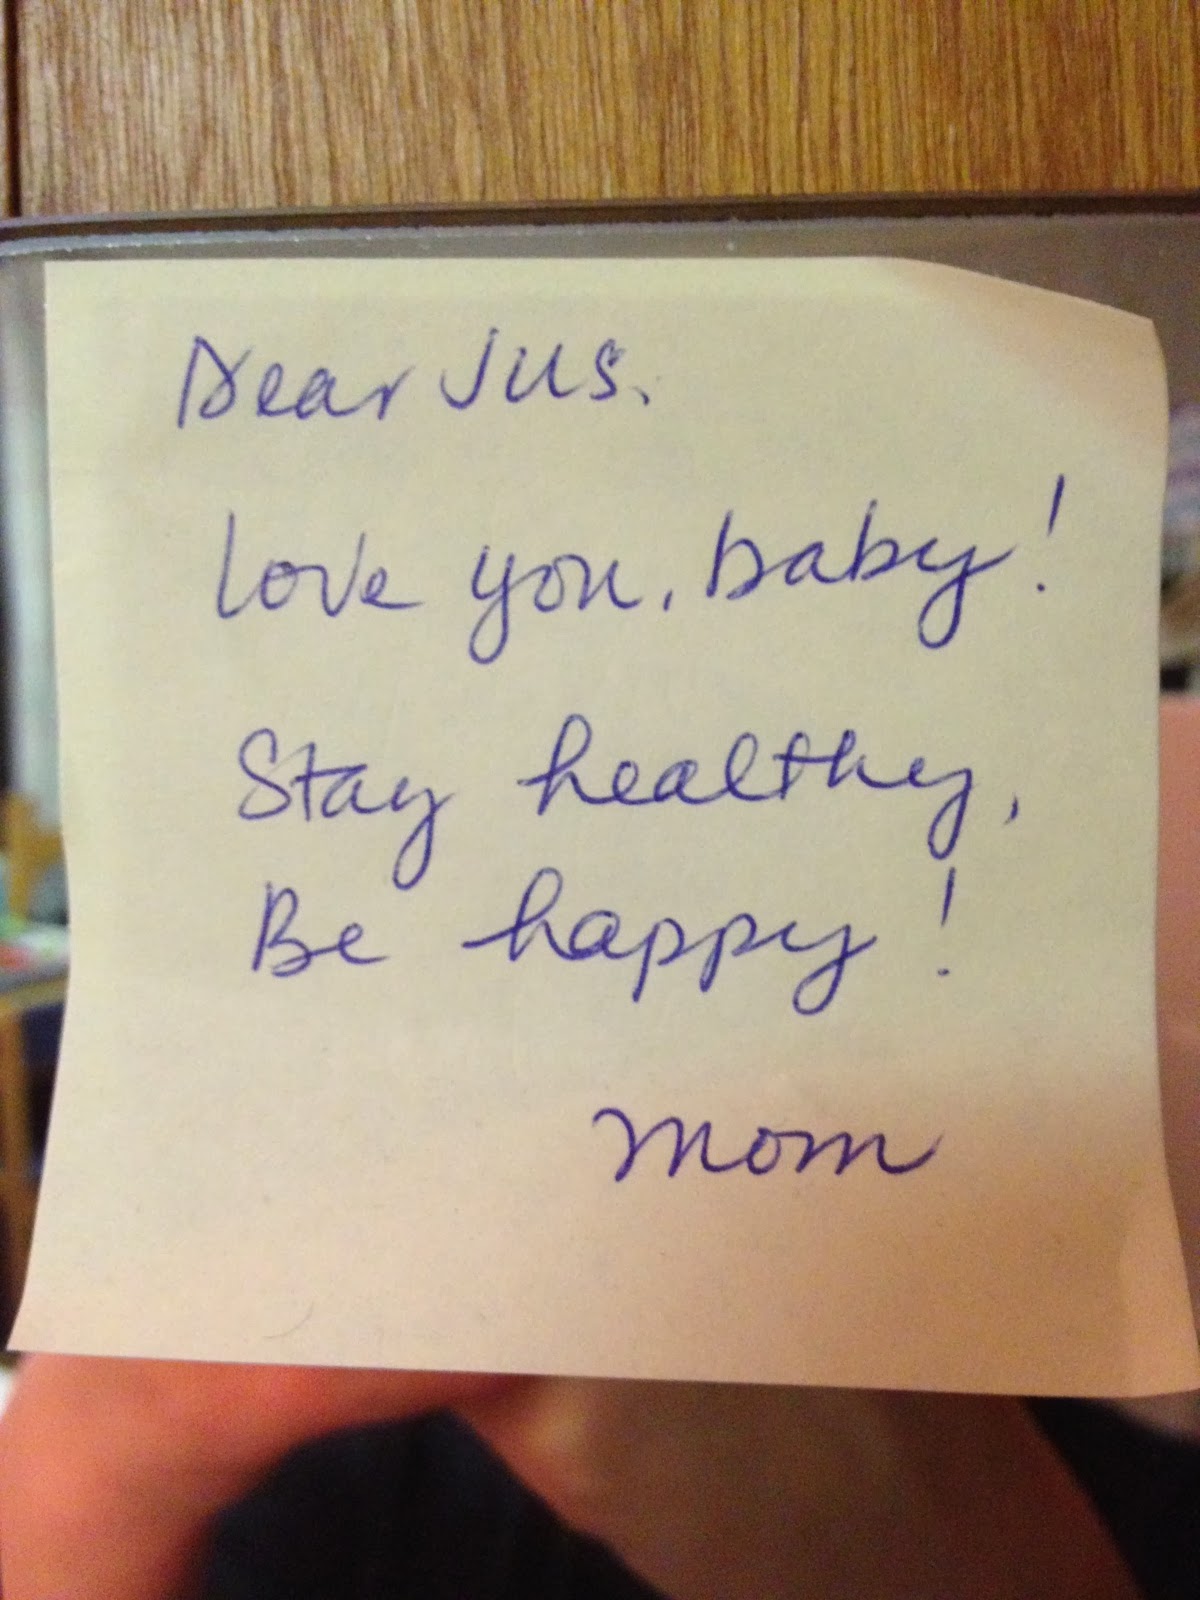 Dear Jus,
Love you, baby!
Stay healthy,
Be happy!
Mom